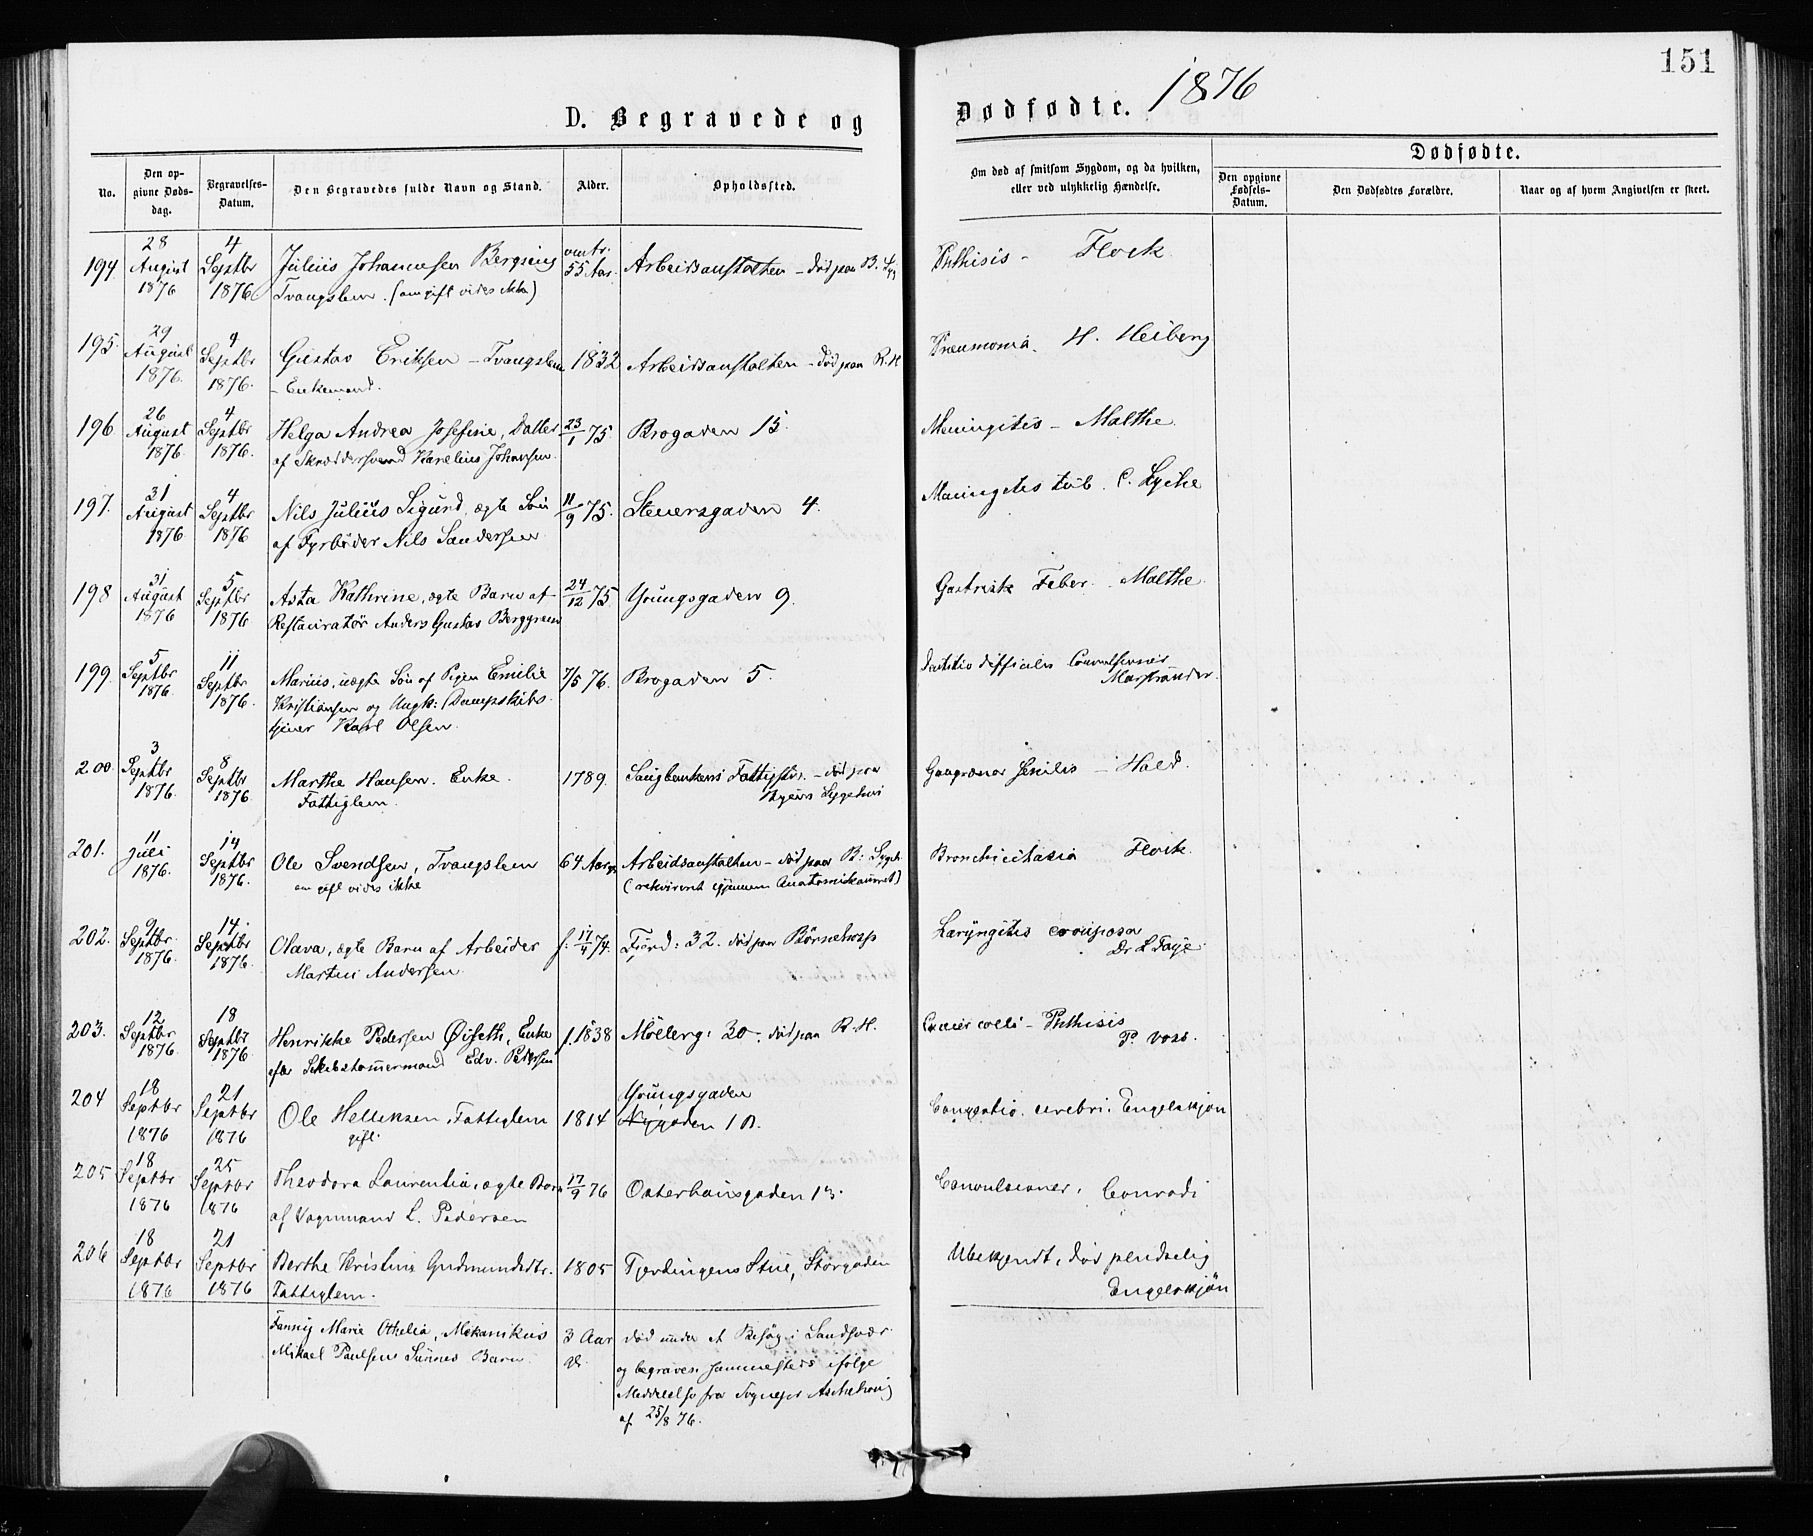 151
D. Begravede og Dødfødte. 1876
No.
Den opgivne Dødsdag.
Begravelses-Datum.
Den Begravedes fulde Navn og Stand.
Alder.
Opholdssted.
Om død af smitsom Sygdom, og da hvilken, eller ved ulykkelig Hændelse.
Dødfødte.
Den opgivne Fødsels-Datum.
Den Dødfødtes Forældre.
Naar og af hvem Angivelsen er skeet.
194. 28 August 1876 4 Septbr 1876 Julius Johannesen omtr. 55 Aar. Arbeidsanstalten - død paa B. Phthisis - Flock
Tvangslem. (om gift vides ikke)
195. 29 August 1876. 4 Septbr 1876. Gustav Eriksen - Tvangslem 1832 Arbeidsanstalten - død paa R.H Pneumonia. H. Heiberg
- Enkemand.
196 26 August 1876. 4 Septbr 1876. Helga Andrea Josefine, Datter 23/1 75. Brogaden 15. Meningitis - Malthe.
af Skræddersvend Karelius Johansen.
197. 31 August 1876 4 Septbr 1876 Nils Julius Sigurd, ægte Søn 11/9 75. Stenersgaden 4. Meningitis tub. C. Lyche
af Fyrbøder Nils Sandersen
198 31 August 1876 5 Septbr 1876 Asta Kathrine, ægte Barn af 24/12 75 Youngsgaden 9. Gastrisk Feber. Malthe.
Restauratør Anders Gustav Berggreen
199. 5 Septbr 1876. 11 Septbr 1876. Marius, uægte Søn af Pigen Emilie 7/5 76. Brogaden 5. Dentitio difficilis Convulsiones
Kristiansen og Ungk: Dampskibs- Marstrander.
tjener Karl Olsen.
200. 3 Septbr 1876. 8 Septbr 1876. Marthe Hansen. Enke. 1789. Saugbankens Fattigstu. - død paa Gangræna senilis - Hald.
Fattiglem. Byens Sygehus
201. 11 Juli 1876. 14 Septbr 1876. Ole Svendsen, Tvangslem 64 Aar Arbeidsanstalten - død paa B: Sygeh. Bronchiectasia Flock.
om gift vides ikke (rekvireret gjennem Anatomikammeret)
202. 9 Septbr. 1876. 14. Septbr 1876. Olava, ægte Barn af Arbeider f. 17/4 74. Fjerd: 32. død paa Børnehosp Laryngitis crouposa
Martin Andersen. Dr L Faye.
203. 12 Septbr 1876. 18 Septbr 1876 Henrikke Pedersen Øiseth, Enke f. 1838 Møllerg: 30. død paa R.H. Cancer colli - Phthisis
efter Skibstømmermand Edv. Petersen P. Voss.
204 18 Septbr 1876 21 Septbr 1876 Ole Helliksen, Fattiglem 1814 Youngsgaden
gift. Nygaden 1 B. Congestio cerebri. Engelskjøn
205 18 Septbr 1876 25 Septbr 1876 Theodora Laurentia, ægte Barn 17/9 76 Osterhausgaden 13. Convulsioner. Conradi
af Vognmand L. Pedersen
206 18 Septbr 1876 21 Septbr 1876 Berthe Kristine Gudmundsdtr. 1805 Fjerdingens Stue, Storgaden Ubekjendt, død pludselig
Fattiglem. Engelskjøn
Fanny Marie Othelia, Mekanikus 3 Aar gl. død under et Besøg i Sandsvær
Mikael Paulsens Barn. og begraven sammesteds ifølge
Meddelelse fra Sognepr Aschehoug
af 25/8 76.